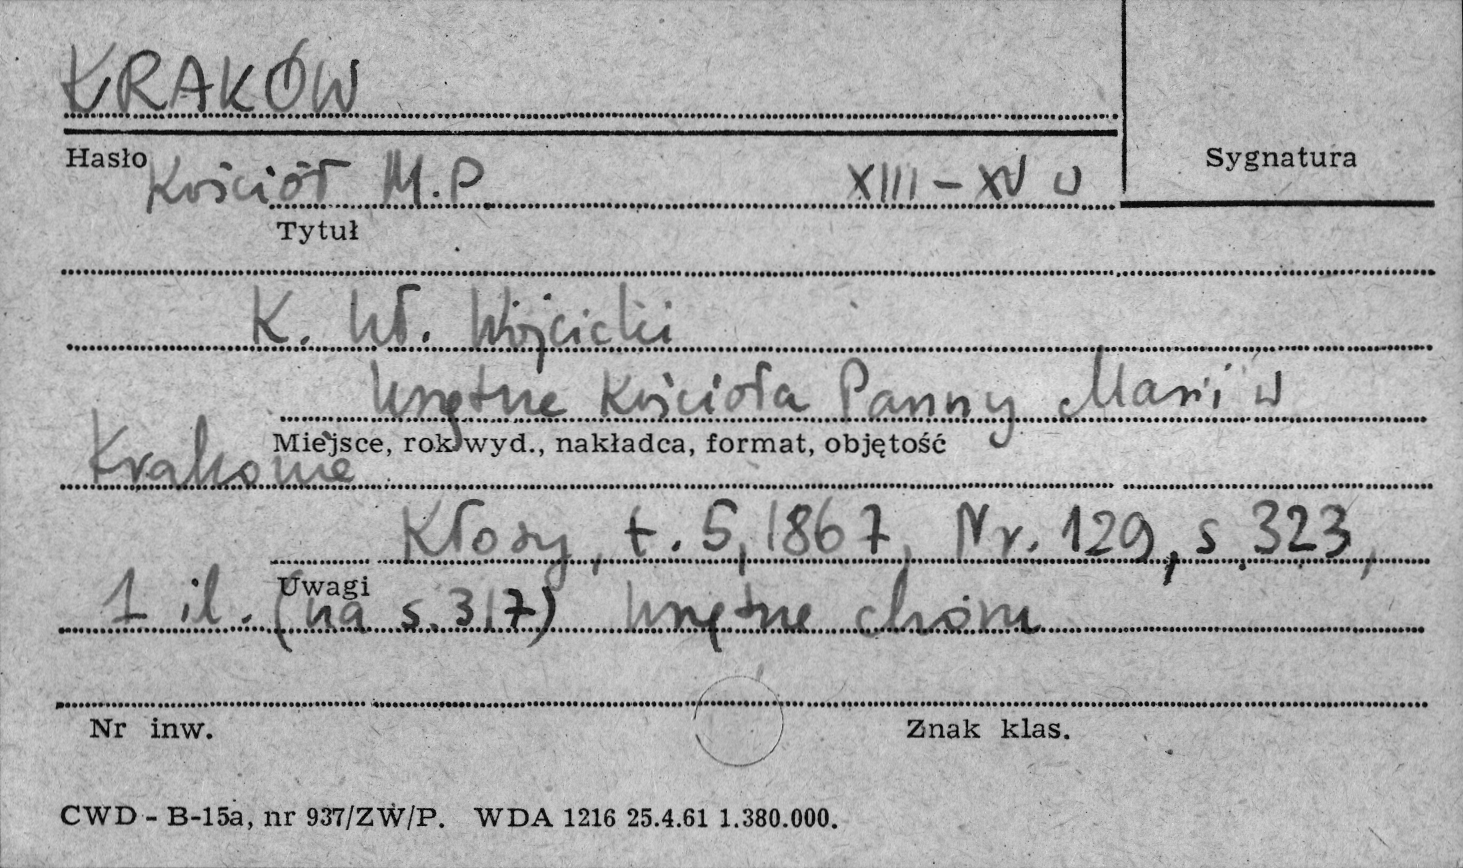 KRAKÓW
Hasło
Sygnatura
Kościół M.P. XIII – XV w
Tytuł
K. Wł. Wójcicki
Wnętrze Kościoła Panny Marii w
Miejsce, rok wyd., nakładca, format, objętość
Krakowie
Kłosy, t. 5, 1867, Nr. 129, s. 323,
Uwagi
1 il. (na s. 317) Wnętrze chóru
Nr inw.
Znak klas.
CWD - B-15a, nr 937/ZW/P. WDA 1216 25.4.61 1.380.000.